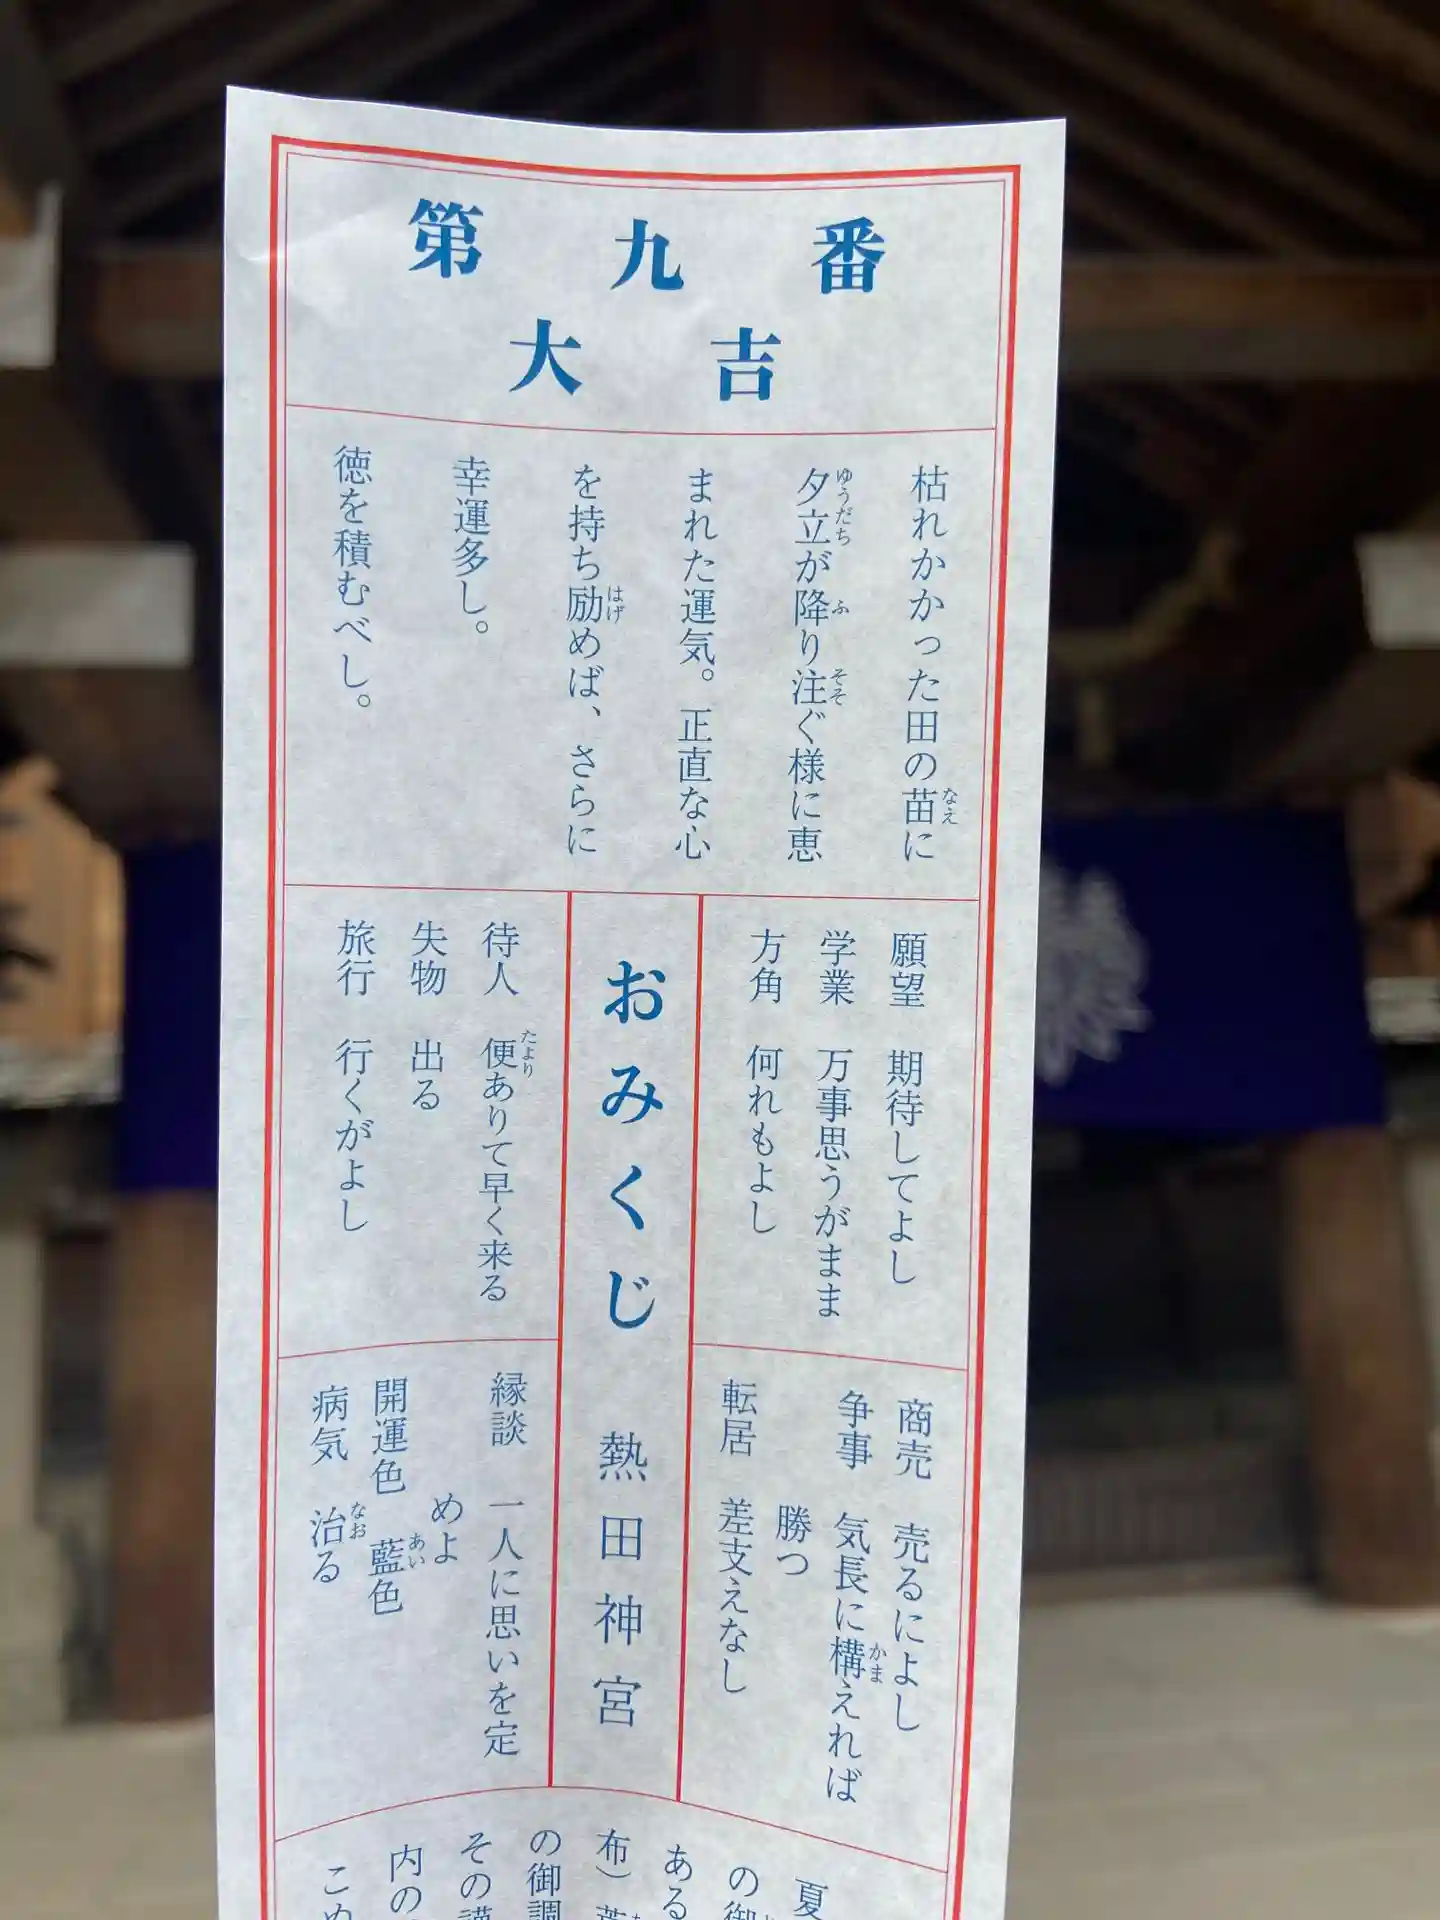 第九番
大吉
枯れかかった田の苗に
夕立が降り注ぐ様に恵
まれた運気。正直な心
を持ち励めば、さらに
幸運多し。
徳を積むべし。
願望 期待してよし
学業 万事思うがまま
方角 何れもよし
商売 売るによし
争事 気長に構えれば
勝つ
転居 差支えなし
おみくじ 熱田神宮
待人 便ありて早く来る
失物 出る
旅行 行くがよし
縁談 一人に思いを定
めよ
開運色 藍色
病気 治る
夏
の御
ある
布)
の御調
その
内の
こめ